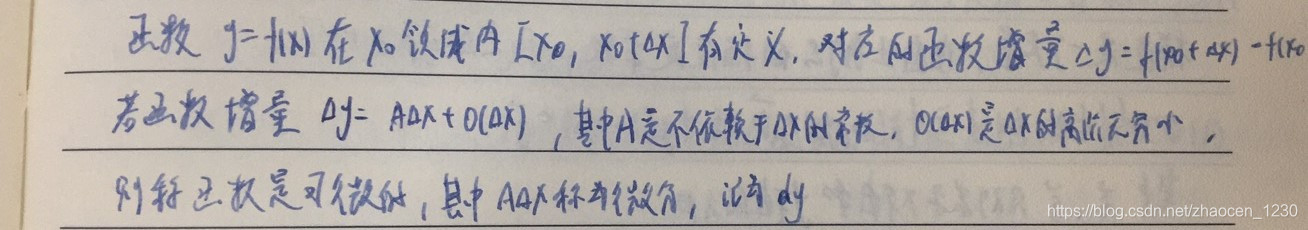 函数 y=f(x) 在 x₀ 领域内 [x₀, x₀+Δx] 有定义. 对应的函数增量 Δy=f(x₀+Δx)-f(x₀
若函数增量 Δy= AΔx+O(Δx) , 其中A是不依赖于Δx的常数. O(Δx)是Δx的高阶无穷小 ,
则称函数是可微的, 其中 AΔx 称为微分, 记为 dy
https://blog.csdn.net/zhaocen_1230